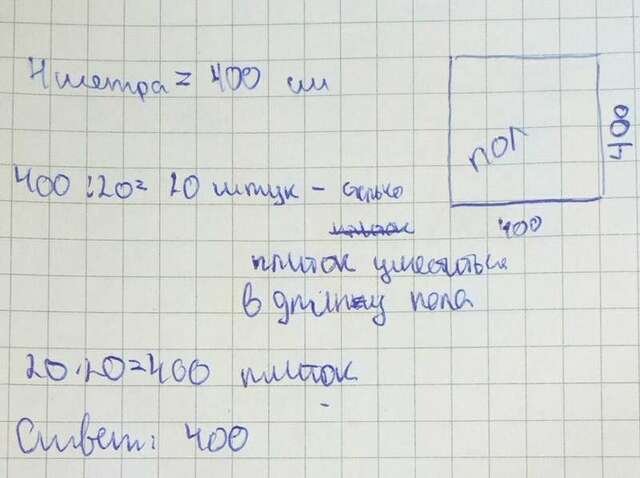 4 метра = 400 см
пол
400
400
400 : 20 = 20 штук - сколько
плиток уместиться
в длину пола
20 · 20 = 400 плиток
Ответ: 400